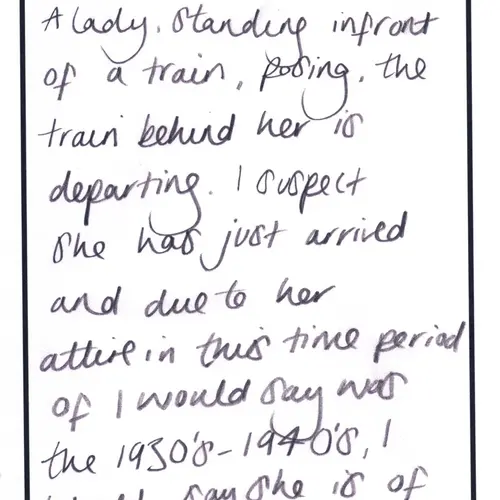 A lady, standing infront
of a train, posing, the
train behind her is
departing. I suspect
she has just arrived
and due to her
attire in this time period
of I would say was
the 1930's-1940's, I
say she is of